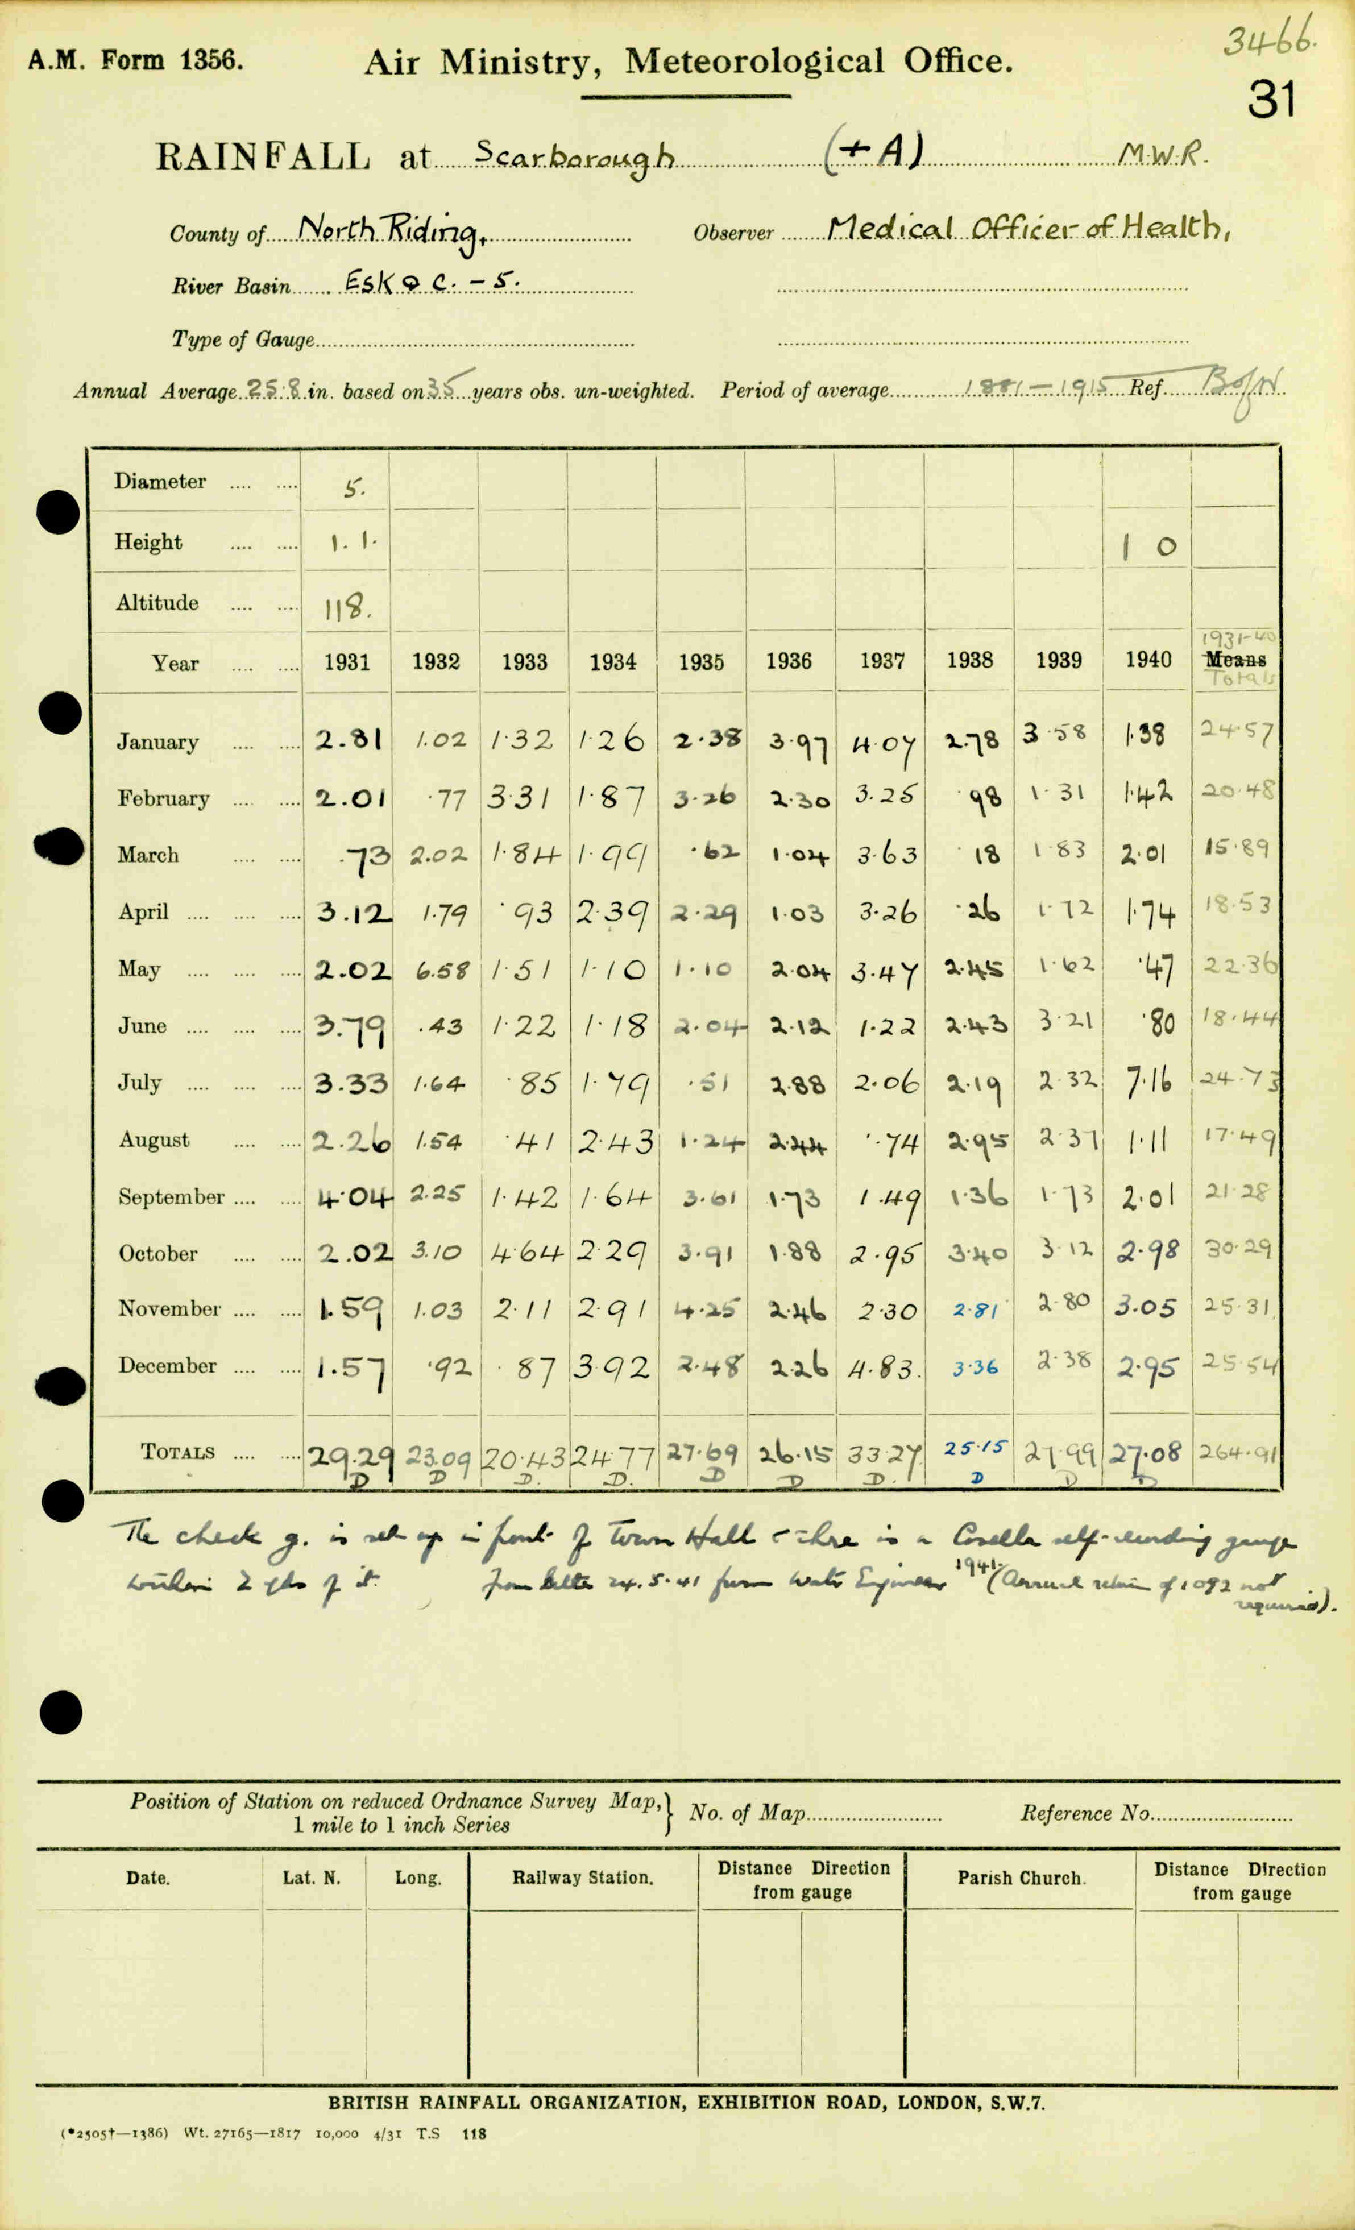 3466.
A.M. Form 1356. Air Ministry, Meteorological Office.
31
RAINFALL at Scarborough (+A) M.W.R.
County of North Riding, Observer Medical Officer of Health,
River Basin Esk & C. - 5.
Type of Gauge
Annual Average 25.8 in. based on 35 years obs. un-weighted. Period of average 1881-1915 Ref. B of W.
Diameter 5.
Height 1. 1. 1 0
Altitude 118.
1931-40
Year 1931 1932 1933 1934 1935 1936 1937 1938 1939 1940 Means
Totals
January 2.81 1.02 1.32 1.26 2.38 3.97 4.07 2.78 3.58 1.38 24.57
February 2.01 .77 3.31 1.87 3.26 2.30 3.25 .98 1.31 1.42 20.48
March .73 2.02 1.84 1.99 .62 1.04 3.63 .18 1.83 2.01 15.89
April 3.12 1.79 .93 2.39 2.29 1.03 3.26 .26 1.72 1.74 18.53
May 2.02 6.58 1.51 1.10 1.10 2.04 3.47 2.45 1.62 .47 22.36
June 3.79 .43 1.22 1.18 2.04 2.12 1.22 2.43 3.21 .80 18.44
July 3.33 1.64 .85 1.79 .51 2.88 2.06 2.19 2.32 7.16 24.73
August 2.26 1.54 .41 2.43 1.24 2.44 .74 2.95 2.37 1.11 17.49
September 4.04 2.25 1.42 1.64 3.61 1.73 1.49 1.36 1.73 2.01 21.28
October 2.02 3.10 4.64 2.29 3.91 1.88 2.95 3.40 3.12 2.98 30.29
November 1.59 1.03 2.11 2.91 4.25 2.46 2.30 2.81 2.80 3.05 25.31
December 1.57 .92 .87 3.92 2.48 2.26 4.83. 3.36 2.38 2.95 25.54
TOTALS 29.29 23.09 20.43 24.77 27.69 26.15 33.27 25.15 27.99 27.08 264.91
D D D. D. D D D. D D D
The check g. is set up in front of Town Hall & there is a Casella self-recording gauge
within 2 yds of it. from letter 24.5.41 from Water Engineer 1941. (Annual return of 1092 not
required).
Position of Station on reduced Ordnance Survey Map, } No. of Map Reference No.
1 mile to 1 inch Series
Date. Lat. N. Long. Railway Station. Distance Direction Parish Church. Distance Direction
from gauge from gauge
BRITISH RAINFALL ORGANIZATION, EXHIBITION ROAD, LONDON, S.W.7.
(*2505†—1386) Wt. 27165—1817 10,000 4/31 T.S 118